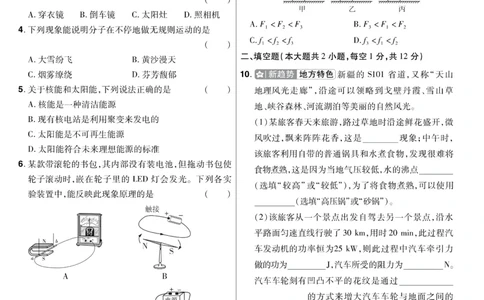 A. 穿衣镜　B. 倒车镜　C. 太阳灶　D. 照相机
4. 下列现象能说明分子在不停地做无规则运动的是
(　　)
A. 大雪纷飞　B. 黄沙漫天
C. 烟雾缭绕　D. 芬芳馥郁
5. 关于核能和太阳能,下列说法正确的是　(　　)
A. 核能是一种清洁能源
B. 现有核电站是利用聚变来发电的
C. 太阳能是不可再生能源
D. 太阳能符合未来理想能源的标准
6. 某款带滚轮的书包,其内部没有装电池,但拖动书包使
轮子滚动时,嵌在轮子里的 LED 灯会发光。下列各实
验装置中,能反映此现象原理的是　(　　)
接触
N　S
A　B
甲　乙　丙
A. F₁<F₂<F₃　B. F₃<F₁<F₂
C. f₁<f₂<f₃　D. f₃<f₁<f₂
二、填空题(本大题共 2 小题,每空 1 分,共 12 分)
10. 新趋势 地方特色 新疆的 S101 省道,又称“天山
地理风光走廊”,沿途可以领略到戈壁丹霞、雪山草
地、峡谷森林、河流湖泊等美丽的自然风光。
(1)某旅客春天来旅游,路过草地时沿途鲜花盛开,微
风吹过,飘来阵阵花香,这是________现象;中午时,
该旅客利用自带的普通锅具和水煮食物,发现很难将
食物煮熟,这是因为当地气压较低,水的沸点________
(选填“较高”或“较低”),为了将食物煮熟,可以使用
________(选填“高压锅”或“砂锅”)。
(2)该旅客从一个景点出发自驾去另一个景点,沿水
平路面匀速直线行驶了 30 km,用时 20 min,此过程汽
车发动机的功率恒为 25 kW,则此过程中汽车牵引力
做的功为________J,汽车所受的阻力为________N。
汽车车轮刻有凹凸不平的花纹是通过________
________的方式来增大汽车车轮与地面之间的